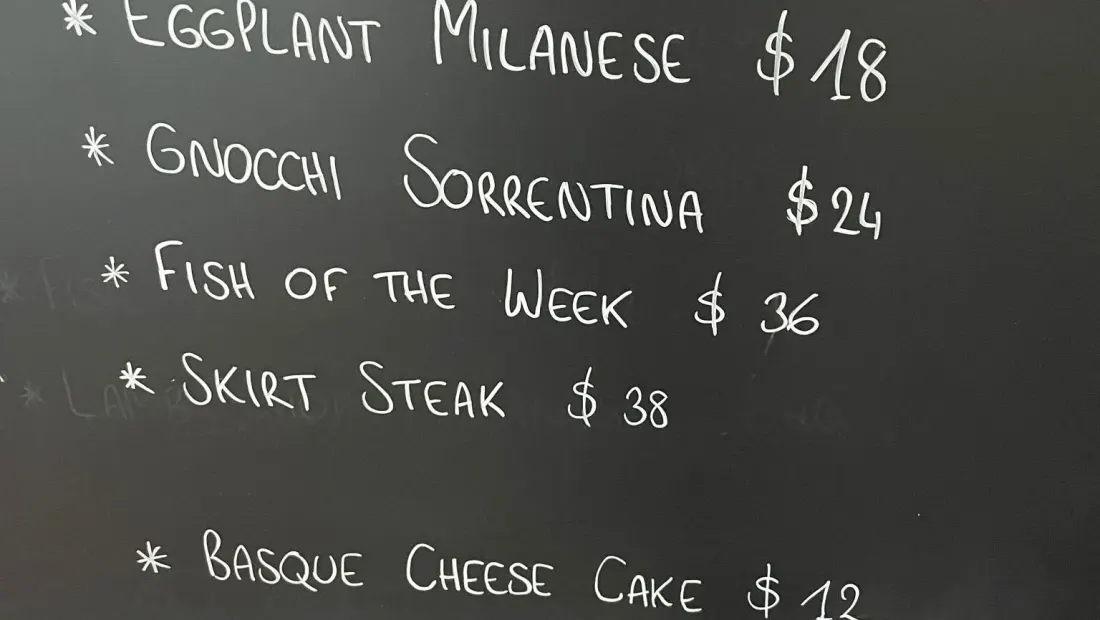 * EGGPLANT MILANESE $18
* GNOCCHI SORRENTINA $24
* FISH OF THE WEEK $ 36
* SKIRT STEAK $ 38
* BASQUE CHEESE CAKE $ 12